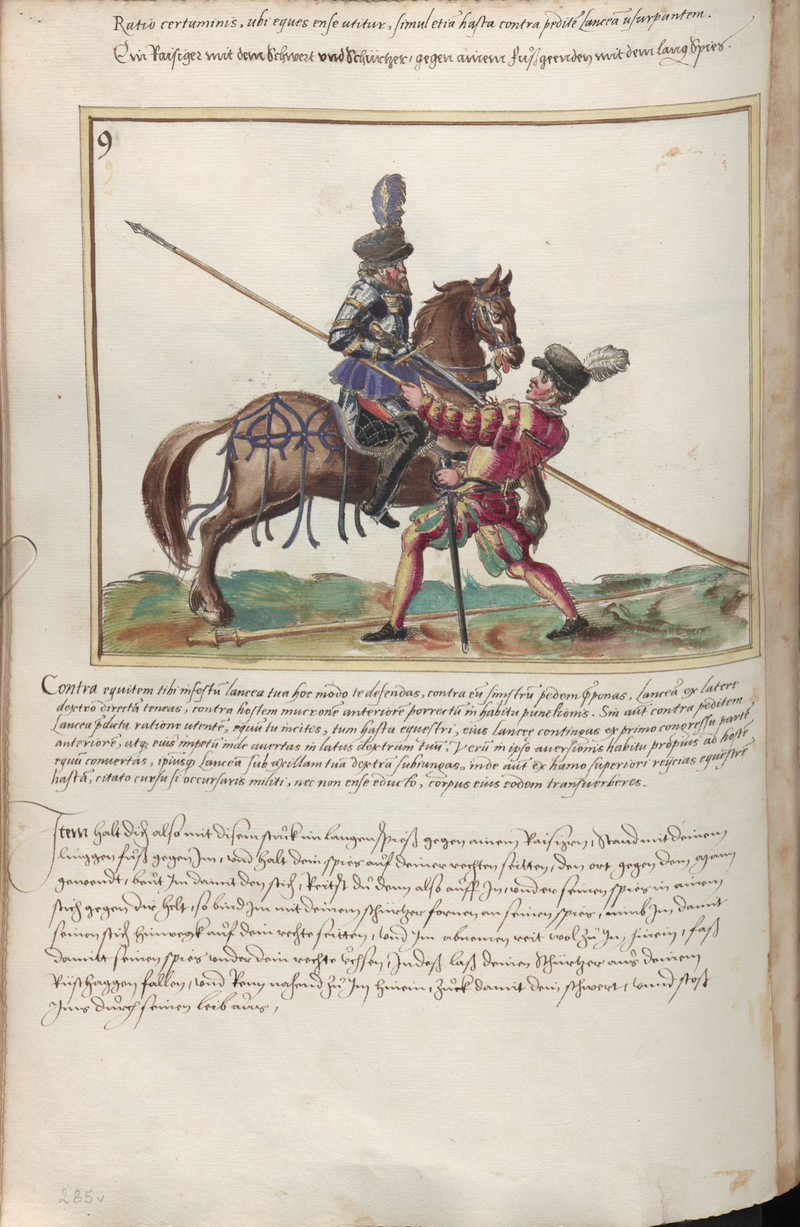 Ratio certaminis, ubi eques ense utitur, simul etiã hasta contra peditẽ lanceã usurpantem.
Ein Raisiger mit dem Schwert und Schürtzer, gegen ainem fußgeenden mit dem lang Spies.
9
Contra equitem tibi infestũ lancea tua hoc modo te defendas, contra eũ sinistrũ pedem p̃ponas, Lanceã ex latere
dextro directã teneas, contra hostem mucrone anteriore porrectũ in habitu punctionis. Sin aũt contra peditem
Lancea p̃dicta ratione utentẽ, equũ tu incites, tum hasta equestri, eius lanceę contingas ex primo congressu partẽ
anteriorẽ, atq; eius impetũ inde avertas in latus dextrum tuũ. Verũ in ipso aversionis habitu propius ad hostẽ
equũ convertas, ipsiusq; Lanceã sub axillam tuã dextrã subiungas, inde aũt ex hamo superiori reijcias equestrẽ
hastã, citato cursu si occursaris militi, nec non ense educto, corpus eius eodem transverberes.
Item halt dich also mit disem stuck im langen spieß gegen ainem Raisigen, Stand mit deinem
linggen fuß gegen Im, und halt dein spies auf deiner rechten seitten, den ort gegen dem
gewendt, beut Im damit den stich, Reitst du dem also auff In, under seinen spies in ainem
stich gegen dir helt, so bind Im mit deinem schürtzer fornen an seinen spies, nimb Im damit
seinen stich hinwegk auf dein rechte seitten, und Im abnemen reit wol zu Im hinein, faß
damit seinen spies under dein rechte Uchsen, Indeß laß deinen Schürtzer aus deinem
Rüsthaggen fallen, und Renn nahend zu Im hinein, zuck damit dein schwert, unnd stoß
Ims durch seinen leib aus,
285v